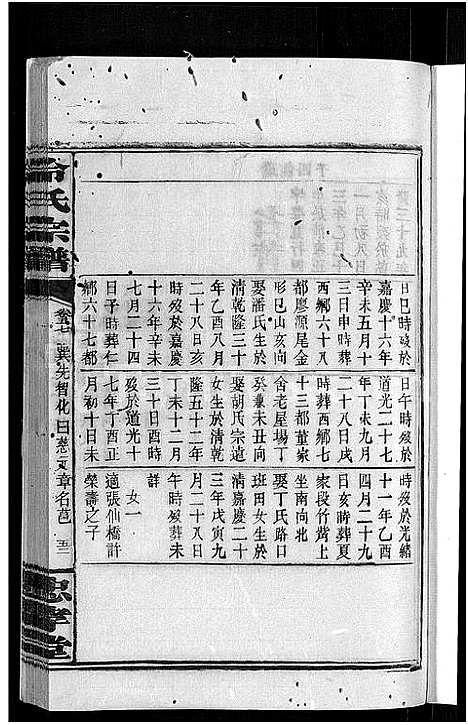 日巳時歿於
嘉慶十六年
辛未五月十
三日申時葬
西鄉六十八
都廖源尾金
形巳山亥向
娶潘氏生於
清乾隆三十
年乙酉八月
二十八日亥
時歿於嘉慶
十六年辛未
七月二十四
日子時葬仁
鄉六十七都
日午時歿於
道光二十七
年丁未九月
二十八日戌
時葬西鄉七
十三都董家
舍老屋場丁
癸兼未丑向
娶胡氏宗道
女生於清乾
隆五十二年
丁未十二月
三十日酉時
歿於道光十
七年丁酉正
月初十日未
時歿於光緒
十一年乙酉
四月二十九
日亥時葬夏
家段竹背上
坐南向北
娶丁氏路口
班田女生於
清嘉慶二十
三年戊寅九
月二十八日
午時歿葬未
詳
女一
適張仙橋許
榮壽之子
氏宗譜
卷七
巽先智化曰慈文章名邑
五二
忠孝堂